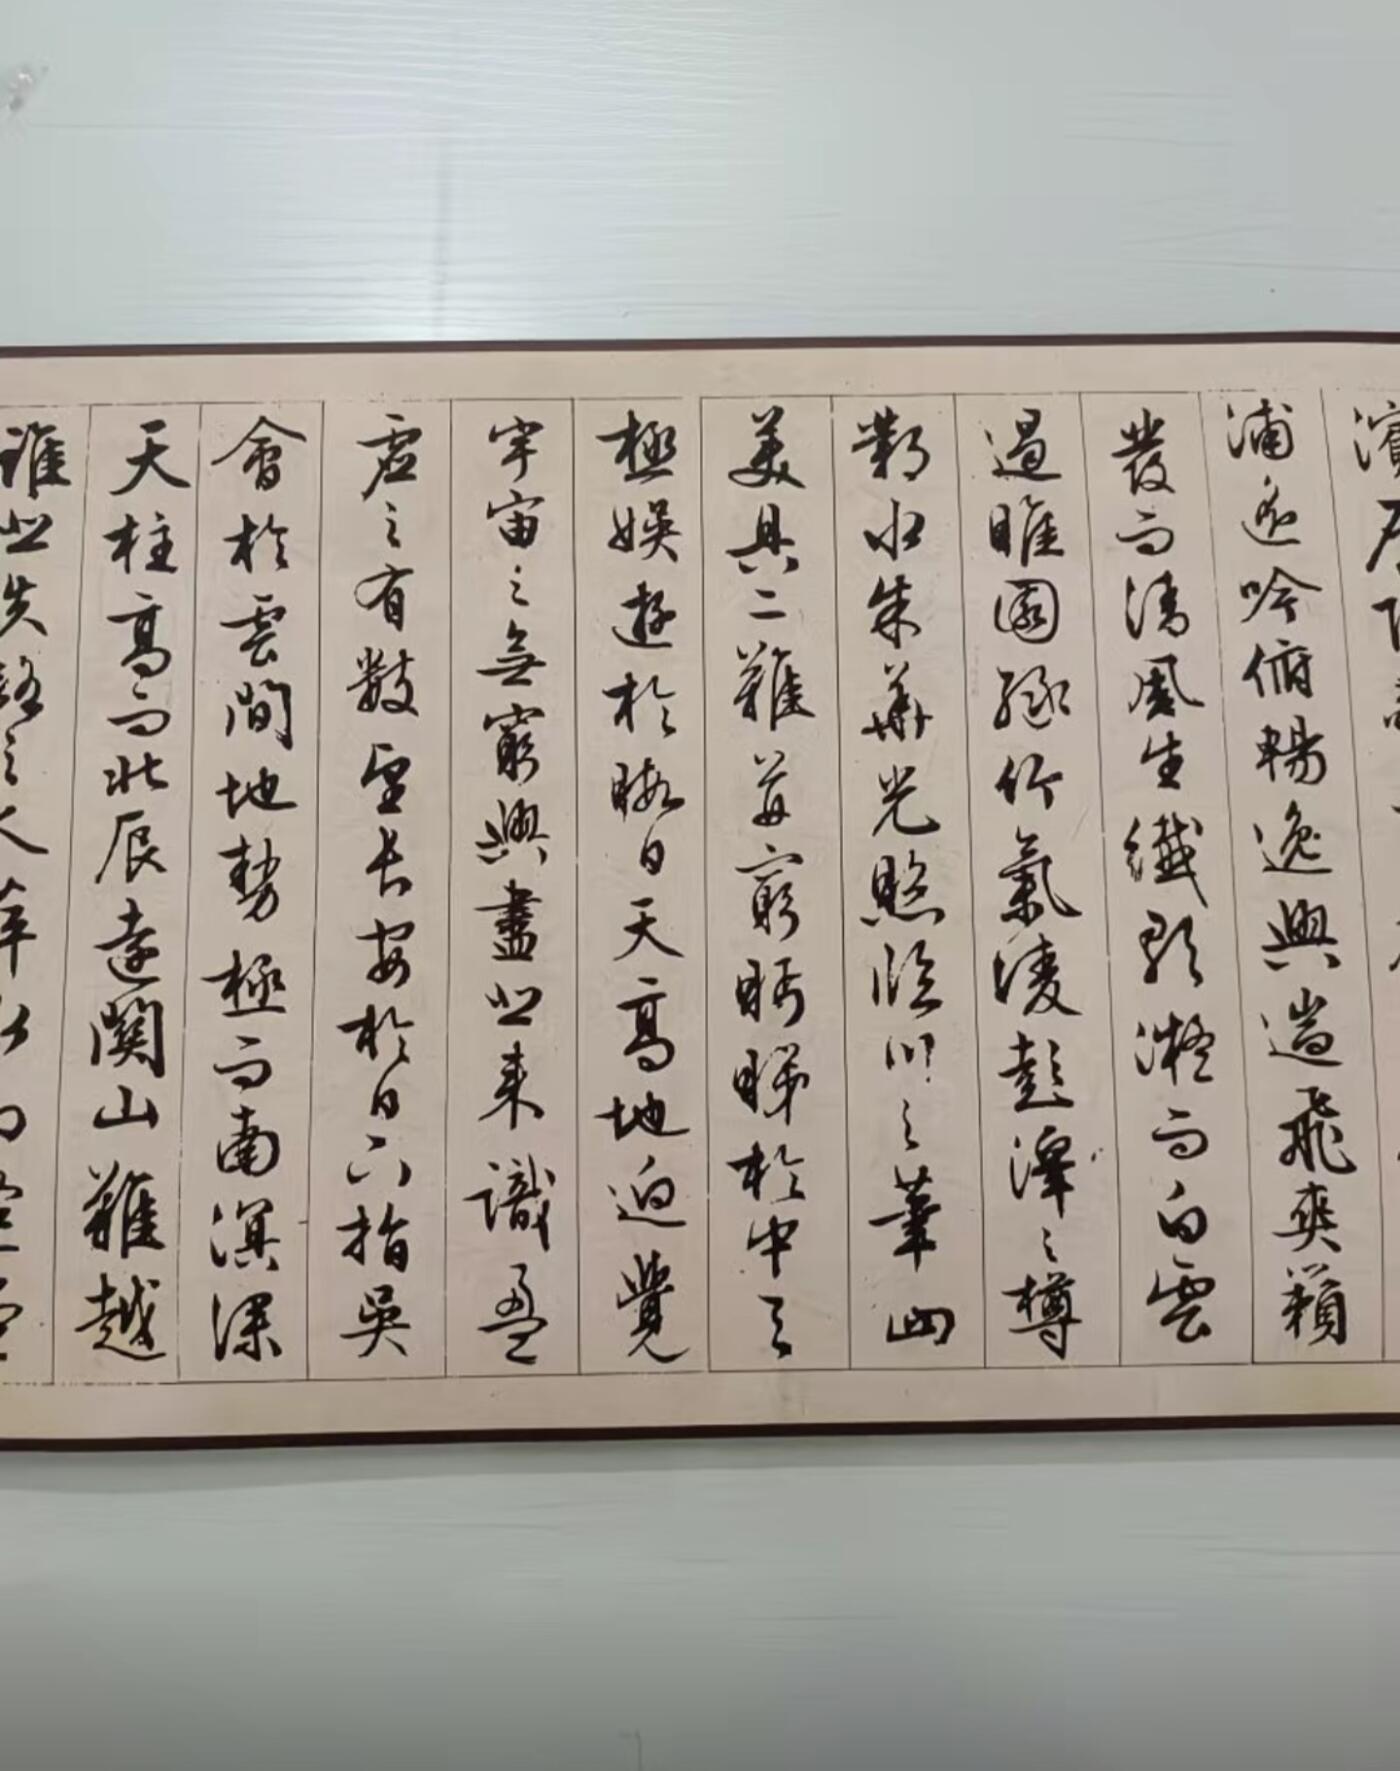 濱
浦遙吟俯暢逸興遄飛爽籟
發而清風生纖歌凝而白雲
遏睢園綠竹氣凌彭澤之樽
鄴水朱華光照臨川之筆四
美具二難並窮眄睇於中天
極娛遊於暇日天高地迥覺
宇宙之無窮興盡悲來識盈
虛之有數望長安於日下指吳
會於雲間地勢極而南溟深
天柱高而北辰遠關山難越
誰悲失路之人萍水